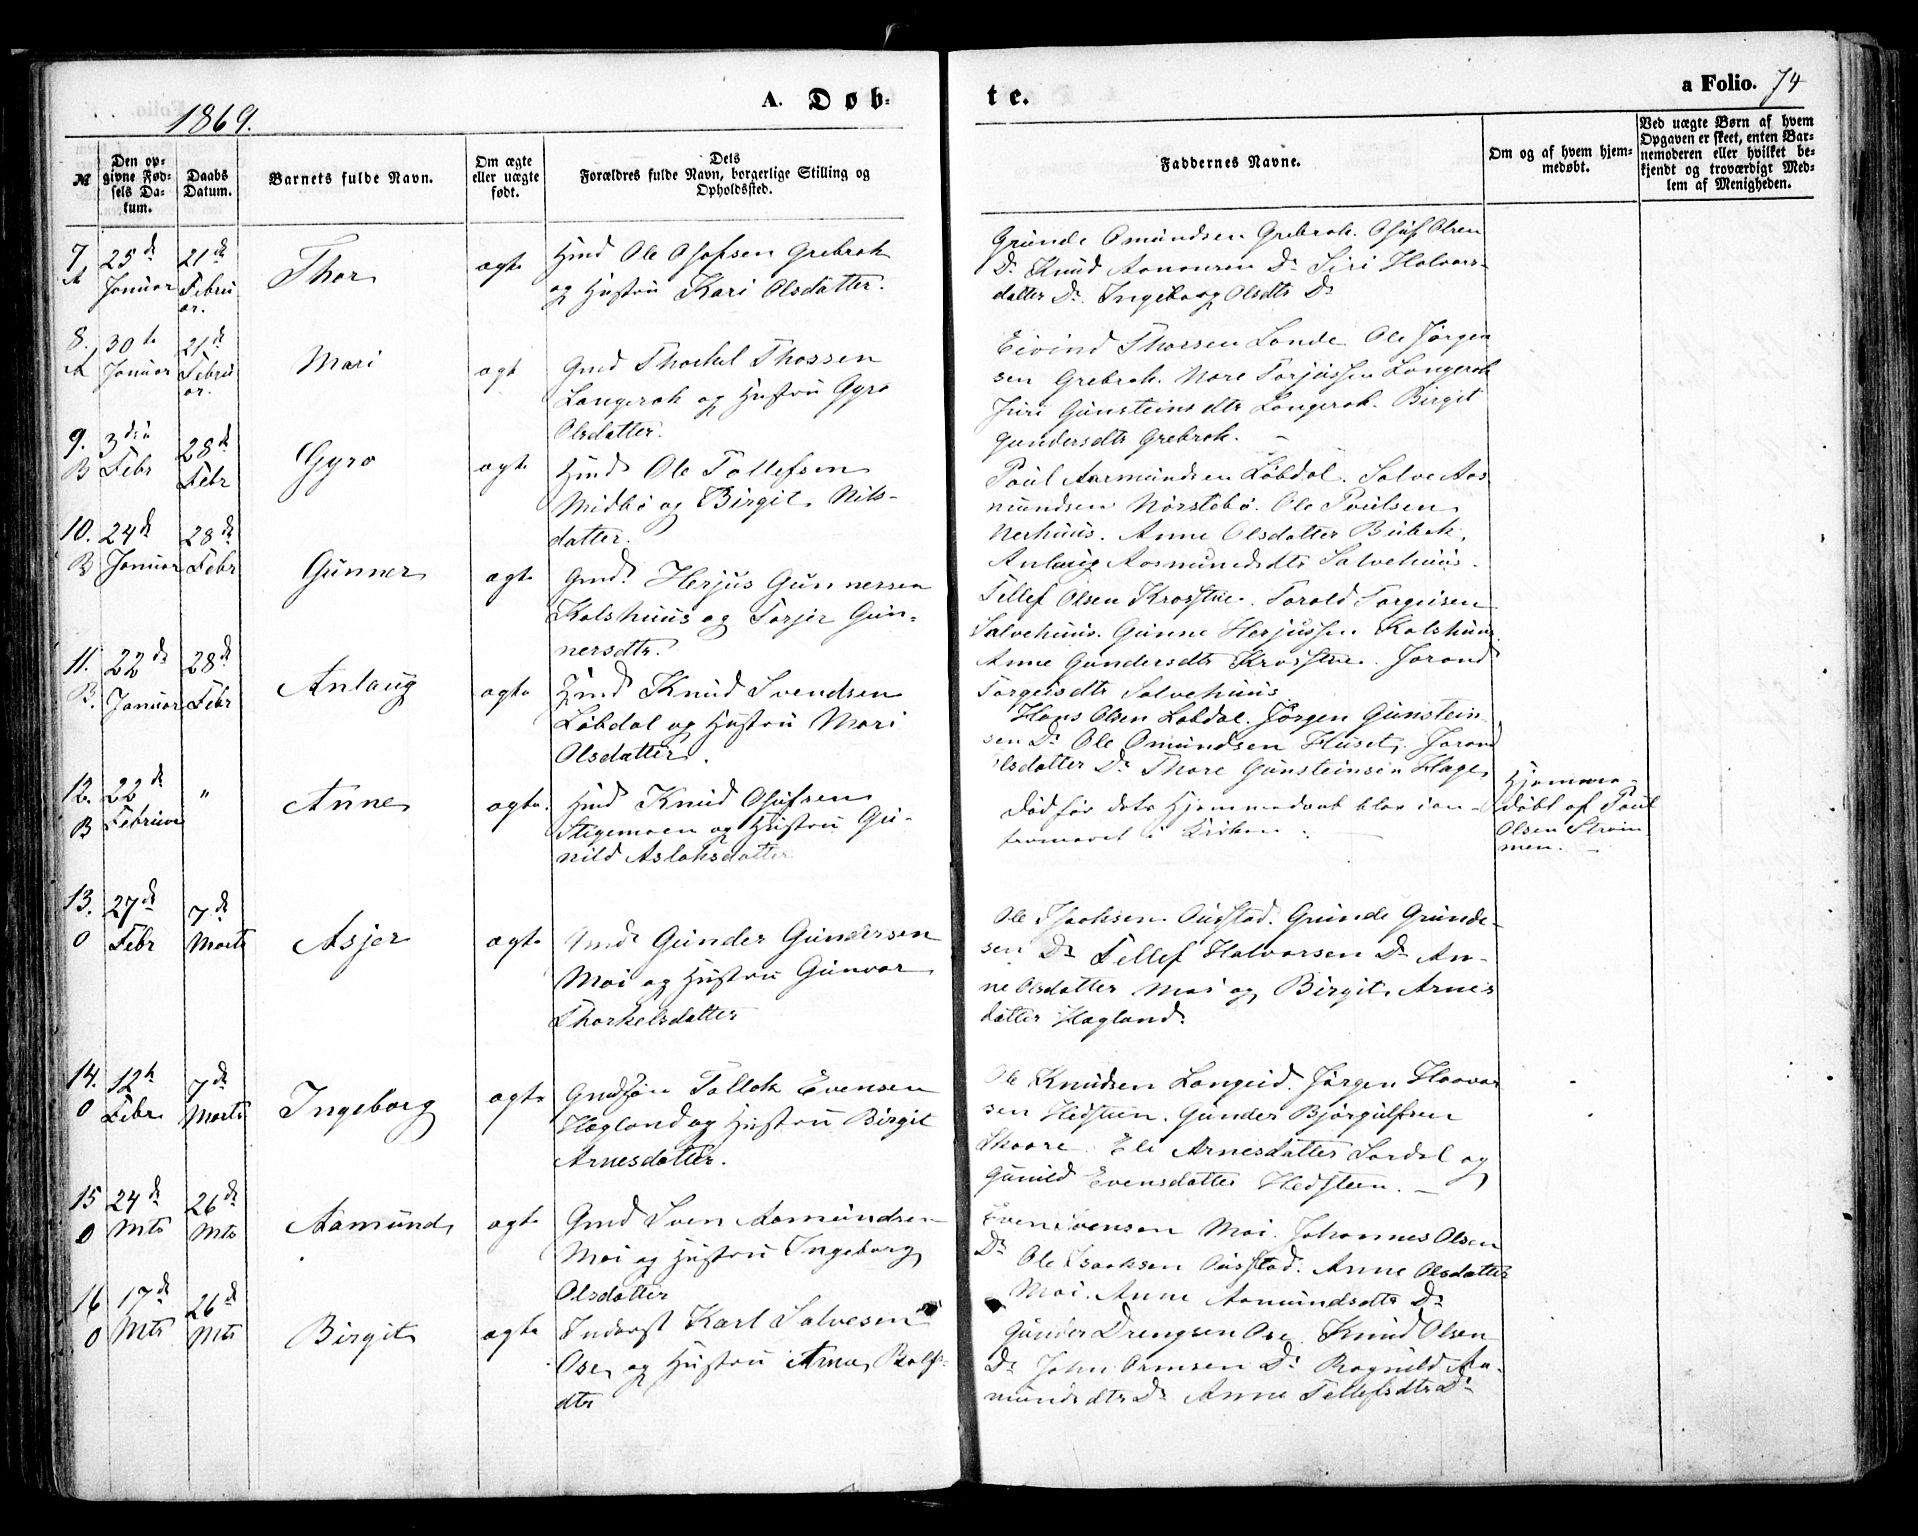 1869.
A. Døb-
te.
a Folio. 74
№
Den op-
givne Fød-
sels Da-
tum.
Daabs
Datum.
Barnets fulde Navn.
Om ægte
eller uægte
født.
Dets
Forældres fulde Navn, borgerlige Stilling og
Opholdssted.
Faddernes Navne.
Om og af hvem hjem-
medøbt.
Ved uægte Børn af hvem
Opgaven er skeet, enten Bar-
nemoderen eller hvilket be-
kjendt og troværdigt Med-
lem af Menigheden.
7
A
25de
Januar
21de
Febru
ar.
Thor
ægte
Hmd Ole Olsen Grebrok
og Hustru Kari Olsdatter.
Grunde Omundsen Grebrok. Olsen
Do Knud Aanonsen Do Siri Halvors-
datter Do. Ingeborg Olsdtr Do
8.
A
30te
Januar
21de
Febru
ar.
Mari
ægt
Gmd Thorkel Thorssen
Langerak og Hustru Gyro
Olsdatter.
Eivind Thorssen Lande Ole Jørgen
sen Grebrok. Tarjussen Langerak
Juri Gunsteinsdtr Langerak. Birgit
Gundersdtr Grebrok. –
9.
B
3die
Febr
28de
Febr
Gyro
ægte
Hmd Ole Tollefsen
Midbø og Birgit Nils-
datter.
Poul Aasmundsen Løbdal. Salve Aas
mundsen Nørstebø. Ole Poulsen
Nerhuus. Anne Olsdatter Bubak,
Anlaug Aasmundsdtr Salvehuus.
10.
B
24de
Januar
28de
Febr
Gunner
ægte
Gmd. Herjus Gunnersen
Kalshuus og Torjer Gun-
nersdtr.
Tellef Olsen Krosstue. Torald Torgeisen
Salvehuus. Gunne Herjussen Kalshuus.
Anne Gundersdtr Krosstue. Jorand
Torgeisdtr Salvehuus
11.
B.
22de
Januar
28de
Febr
Anlaug
ægte
Hmd Knud Svendsen
Løbdal og Hustru Mari
Olsdatter.
Hans Olsen Løbdal. Jørgen Gunstein-
sen Do Ole Omundsen Huset. Jorand
Olsdatter Do Thore Gunsteinsen Hage
12.
B
22de
Februar
"
Anne
ægte.
Hmd Knud Olufsen
Stigemoen og Hustru Gu-
nild Aslaksdatter
Død før dets Hjemmedaab blev con-
fermeret i Kirken.
Hjemme-
døbt af Poul
Olsen Strøm
men. –
13.
O
27de
Febr
7de
Marts
Asjer
ægte
Gmd Gunder Gundersen
Moi og Hustru Gunvor
Thorkelsdatter
Ole Isaaksen Austad. Grunde Grunde-
sen Do Tellef Halvorsen Do An-
ne Olsdatter Moi og Birgit Arnes
datter Hægland.
14.
O
12te
Febr
7de
Marts
Ingeborg
ægte
Gmdssøn Tallak Evensen
Hægland og Hustru Birgit
Arnesdatter.
Ole Knudsen Langeid. Jørgen Haavar
sen Hedsteen. Gunder Bjørgulfsen
Skaare. Eli Arnesdatter Sordal og
Gunild Evensdatter Hedsteen. –
15
O
24de
Mts
26de
Mts
Aamund
ægte
Gmd Sven Aamundsen
Moi og Hustru Ingeborg
Olsdatter
Even Evensen Moi. Johannes Olsen
Do Ole Isaaksen Austad. Anne Olsdatter
Moi. Anne Aamundsdtr Do
16
O
17de
Mts
26de
Mts
Birgit
ægte
Inderst Karl Salvesen
Ose og Hustru Anne Rolfs-
dtr
Gunder Drengsen Ose. Knud Olsen
Do John Ormsen Do Ragnild Aa-
mundsdtr Do Anne Tellefsdtr Do